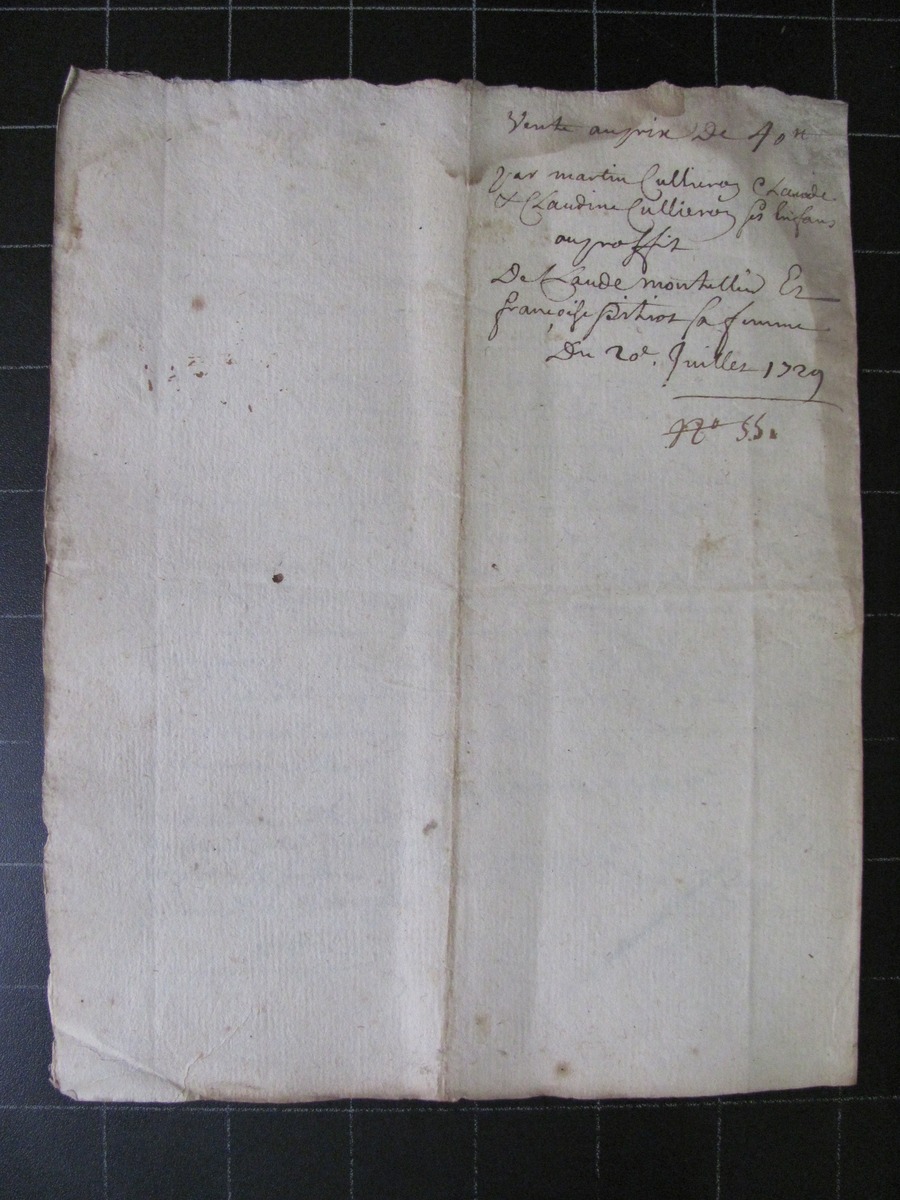 Vente au prix De 40 tt
par martin Cullieron Claude
& Claudine Cullieron ses Enfans
au proffit
De Claude montellin Et
francoise pitiot sa femme
Du 20e. Juillet 1729
No 55.